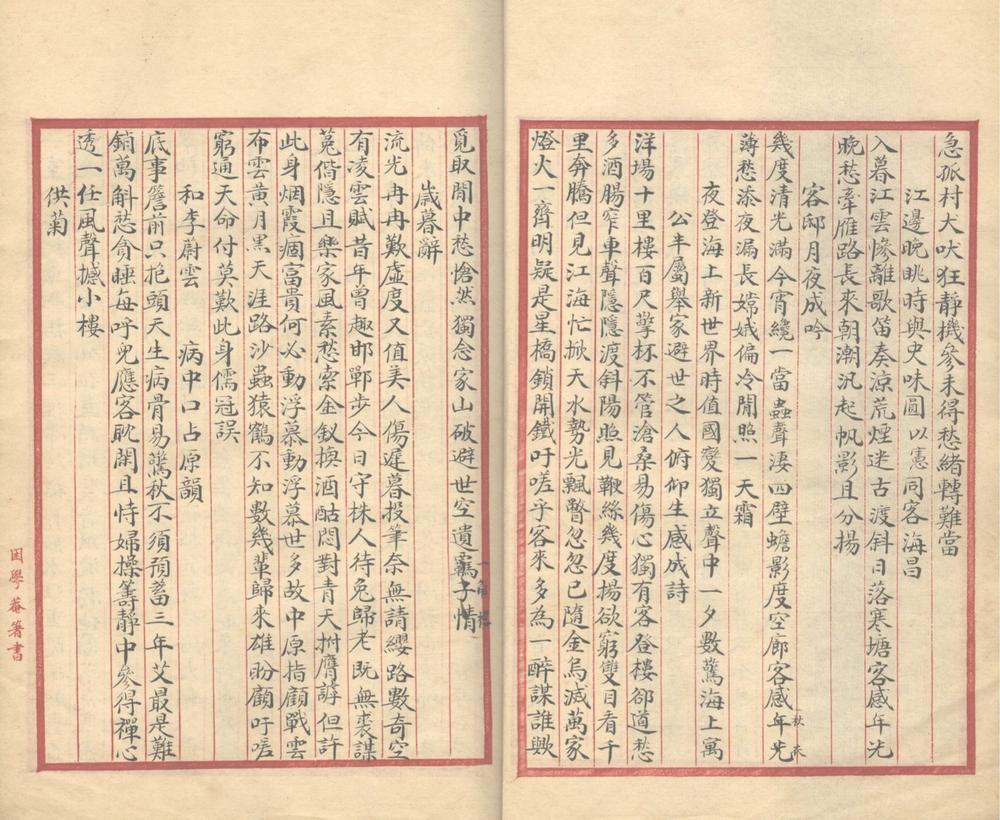 急孤村犬吠狂靜機參未得愁緒轉難當
江邊晚眺時與史味圓以憲同客海昌
入暮江雲慘離歌笛奏涼荒煙迷古渡斜日落寒塘客感年光
晚愁牽雁路長來朝潮汎起帆影且分揚
客邸月夜成吟
幾度清光滿今宵纔一當蟲聲淒四壁蟾影度空廊客感年光
秋來
薄愁添夜漏長嫦娥偏冷閒照一天霜
夜登海上新世界時值國變獨立聲中一夕數驚海上寓
公半屬舉家避世之人俯仰生感成詩
洋場十里樓百尺擎杯不管滄桑易傷心獨有客登樓卻道愁
多酒腸窄車聲隱隱渡斜陽照見鞭絲幾度揚欲窮雙目看千
里奔騰但見江海忙掀天水勢光飄瞥忽忽已隨金烏滅萬家
燈火一齊明疑是星橋鎖開鐵吁嗟乎客來多為一醉謀誰歟
覓取閒中愁愴然獨念家山破避世空遺羈子情
歲暮辭
流光冉冉歎虛度又值美人傷遲暮投筆奈無請纓路數奇空
有凌雲賦昔年曾趣邯鄲步今日守株人待兔歸老既無裘謀
菟偕隱且樂家風素愁索金釵換酒酤悶對青天拊膺訴但許
此身烟霞痼富貴何必動浮慕動浮慕世多故中原指顧戰雲
布雲黃月黑天涯路沙蟲猿鶴不知數幾輩歸來雄盼顧吁嗟
窮通天命付莫歎此身儒冠誤
和李蔚雲 病中口占原韻
底事簷前只抱頭天生病骨易驚秋不須預蓄三年艾最是難
銷萬斛愁貪睡每呼兒應客耽閑且恃婦操籌靜中參得禪心
透一任風聲撼小樓
供菊
因學菴箸書